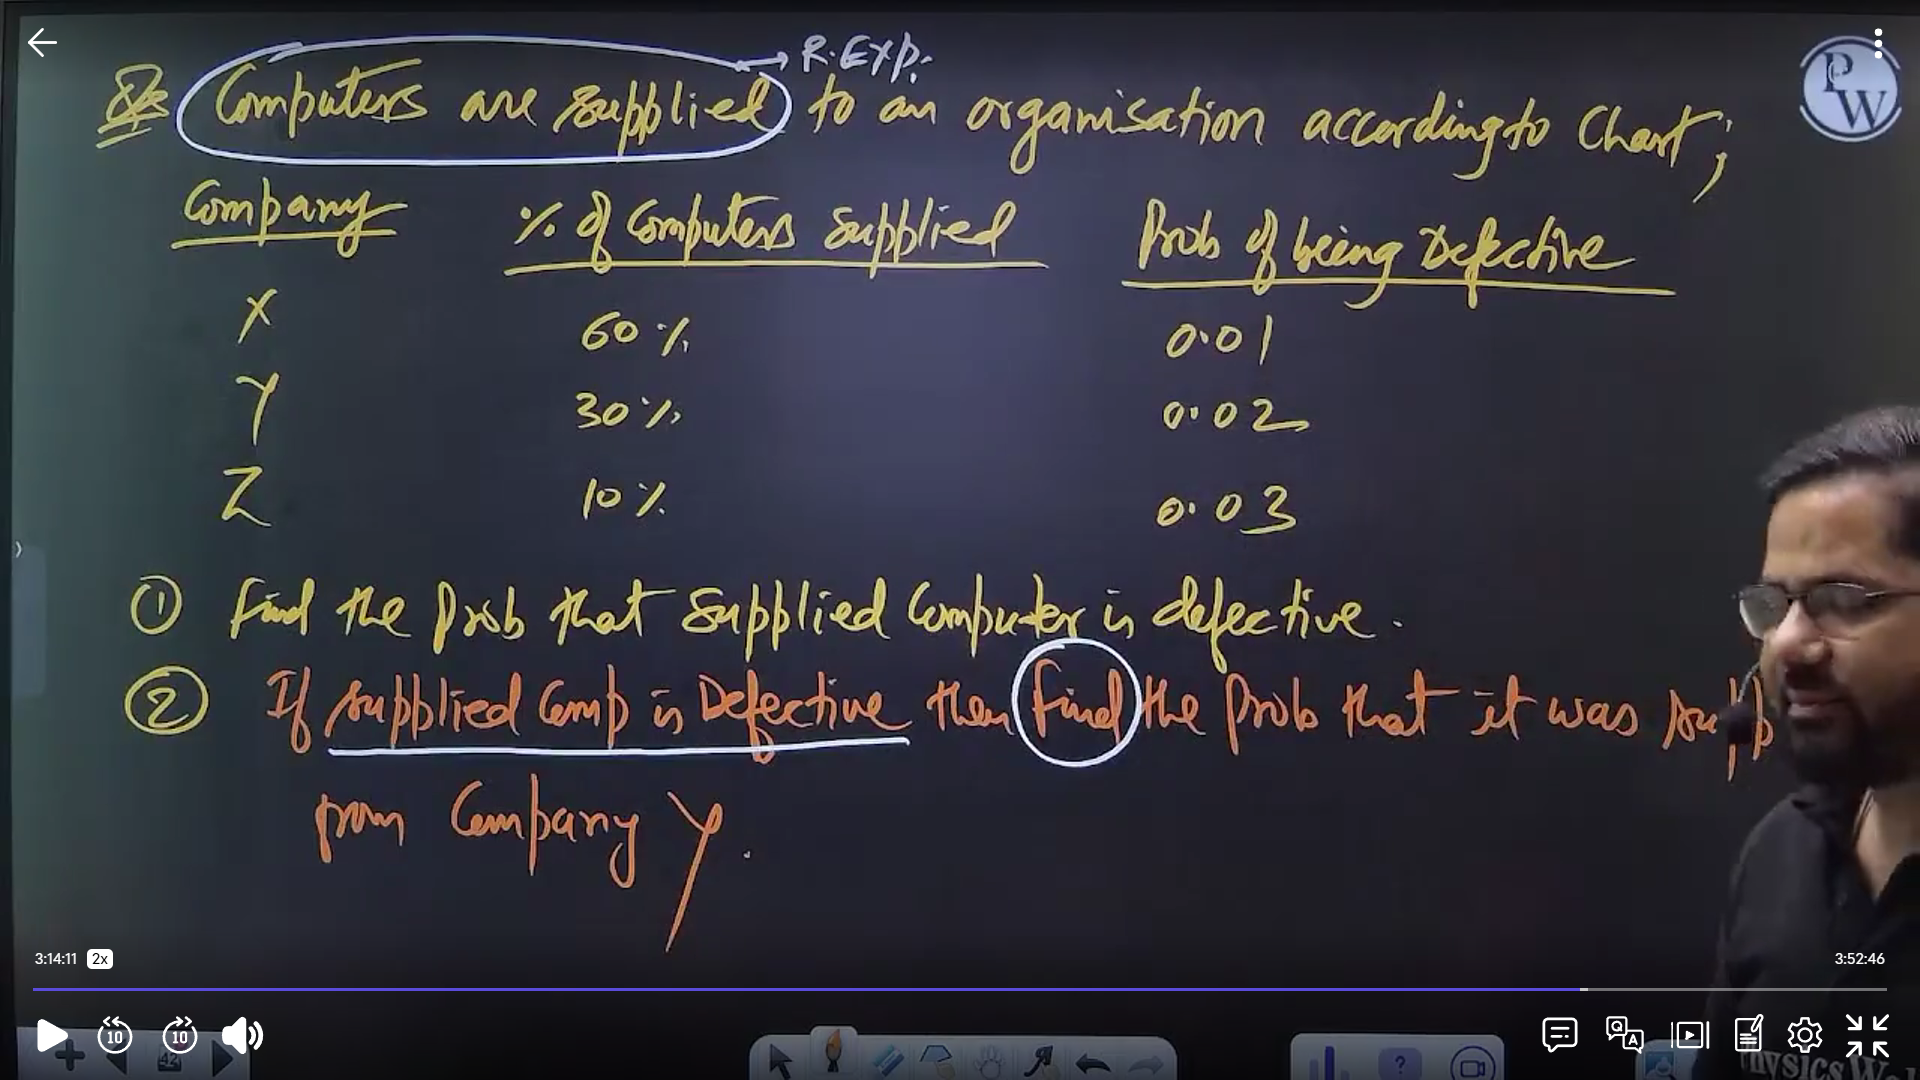 → R.Exp.
Q: Computers are supplied to an organisation according to Chart;
PW
Company % of Computers Supplied Prob of being Defective
X 60% 0.01
Y 30% 0.02
Z 10% 0.03
① Find the Prob that supplied Computer is defective.
② If supplied Comp is Defective then Find the Prob that it was supp
from Company Y.
3:14:11 2x 3:52:46
10 10
42
Physics Wal